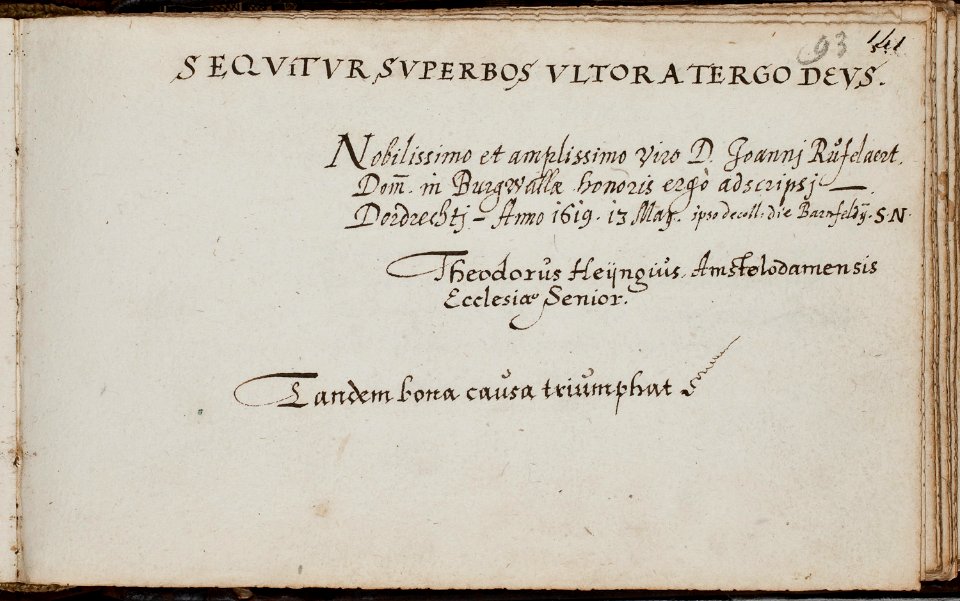 93 141
SEQVITVR SVPERBOS VLTOR A TERGO DEVS.
Nobilissimo et amplissimo viro D. Joannj Rufelaert.
Dom̄. in Burgwallæ honoris ergò adscripsj —.
Dordrechtj – Anno 1619. 13 Maj. ipso decoll: die Barnfeldÿ. S.N.
Theodorus Heÿngiŭs. Amstelodamensis
Ecclesiæ Senior.
Tandem bona caŭsa triŭmphat